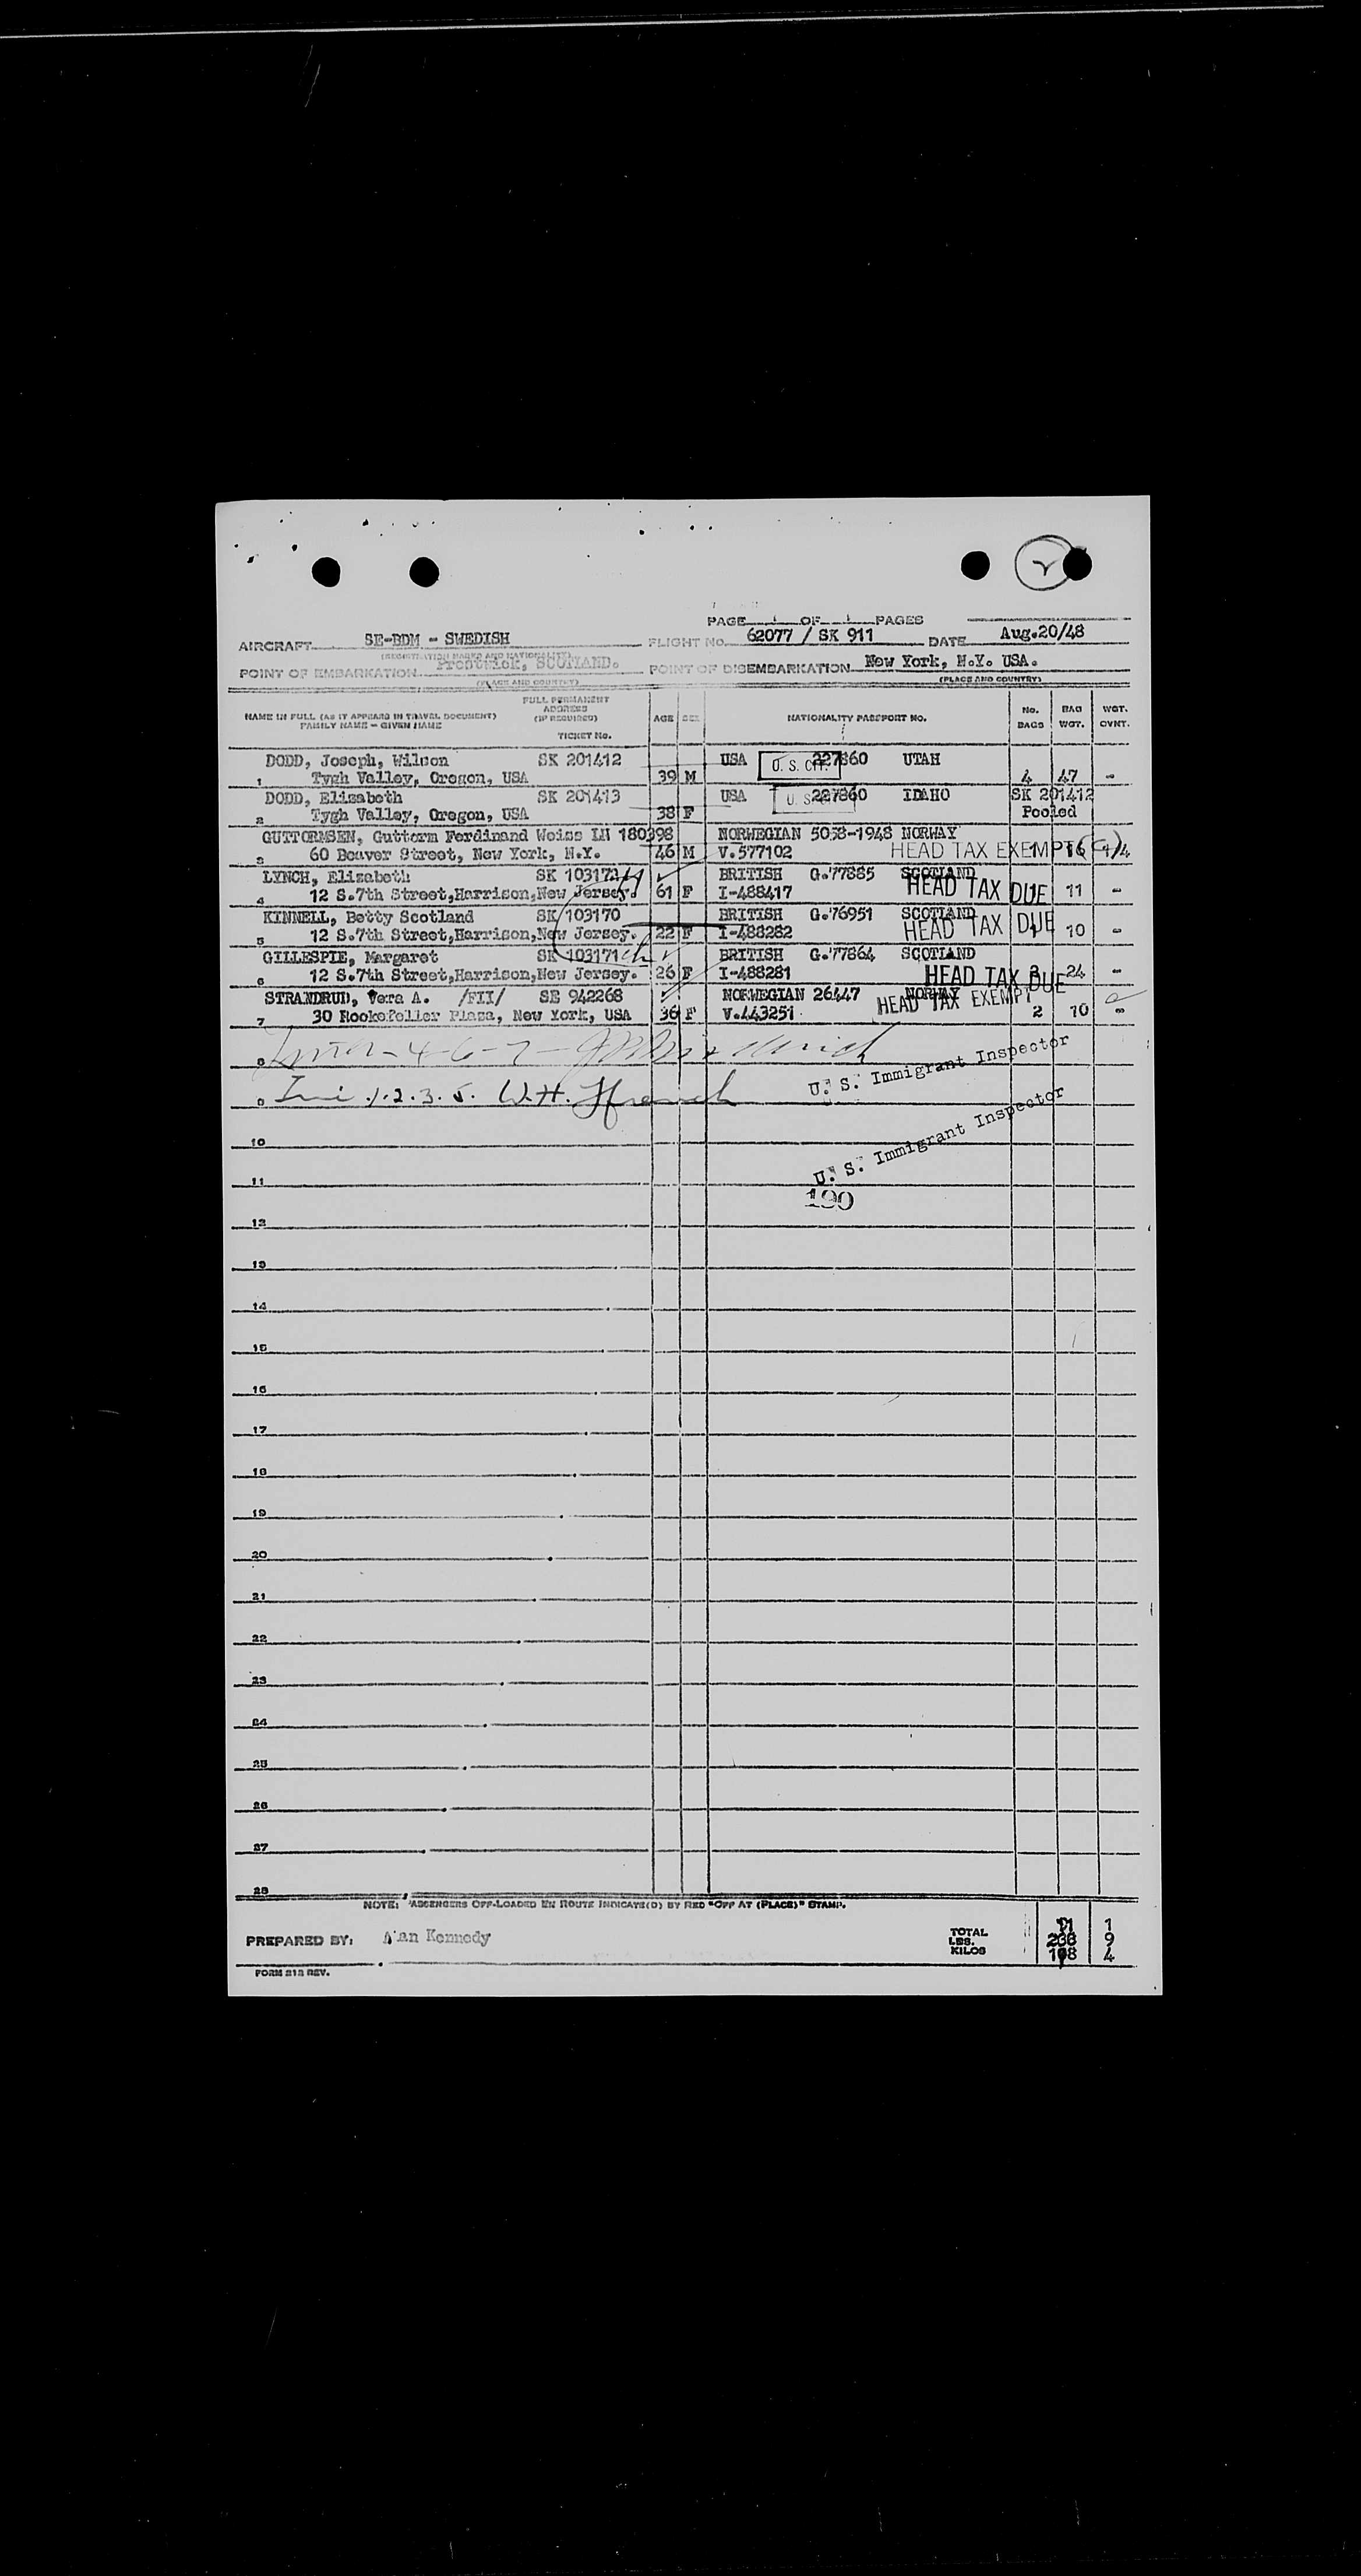 PAGE 1 OF 1 PAGES
AIRCRAFT SE-BDM - SWEDISH FLIGHT NO. 62077 / SK 911 DATE Aug.20/48
(REGISTRATION MARKS AND NATIONALITY)
POINT OF EMBARKATION Prestwick, SCOTLAND. POINT OF DISEMBARKATION New York, N.Y. USA.
(PLACE AND COUNTRY) (PLACE AND COUNTRY)
NAME IN FULL (AS IT APPEARS IN TRAVEL DOCUMENT) FAMILY NAME - GIVEN NAME FULL PERMANENT ADDRESS (IF REQUIRED) TICKET No. AGE SEX NATIONALITY PASSPORT NO. No. BAGS BAG WGT. WGT. OVNT.
DODD, Joseph, Wilson SK 201412 USA U. S. CIT. 227860 UTAH
1 Tygh Valley, Oregon, USA 39 M 4 47 -
DODD, Elizabeth SK 201413 USA U. S. 227860 IDAHO SK 201412
2 Tygh Valley, Oregon, USA 38 F Pooled
GUTTORMSEN, Guttorm Ferdinand Weiss LH 180398 NORWEGIAN 5038-1948 NORWAY
3 60 Beaver Street, New York, N.Y. 46 M V.577102 HEAD TAX EXEMPT 16 4
LYNCH, Elizabeth SK 10317 BRITISH G.77885 SCOTLAND
4 12 S.7th Street,Harrison,New Jersey. 61 F I-488417 HEAD TAX DUE 1 11 -
KINNELL, Betty Scotland SK 103170 BRITISH G.76951 SCOTLAND
5 12 S.7th Street,Harrison,New Jersey. 22 F I-488282 HEAD TAX DUE 1 10 -
GILLESPIE, Margaret SK 103171 BRITISH G.77864 SCOTLAND
6 12 S.7th Street,Harrison,New Jersey. 26 F I-488281 HEAD TAX DUE 24 -
STRANDRUD, Vera A. /FII/ SE 942268 NORWEGIAN 26447 NORWAY
7 30 Rockefeller Plaza, New York, USA 36 F V.443251 HEAD TAX EXEMPT 2 10 -
8 4-6-7-
U. S. Immigrant Inspector
9 1.2.3.5. W.H.
U. S. Immigrant Inspector
10
11
190
12
13
14
15
16
17
18
19
20
21
22
23
24
25
26
27
28
NOTE: PASSENGERS OFF-LOADED EN ROUTE INDICATE(D) BY RED "OFF AT (PLACE)" STAMP.
PREPARED BY: Alan Kennedy
TOTAL 11 1
LBS. 238 9
KILOS 108 4
FORM 212 REV.